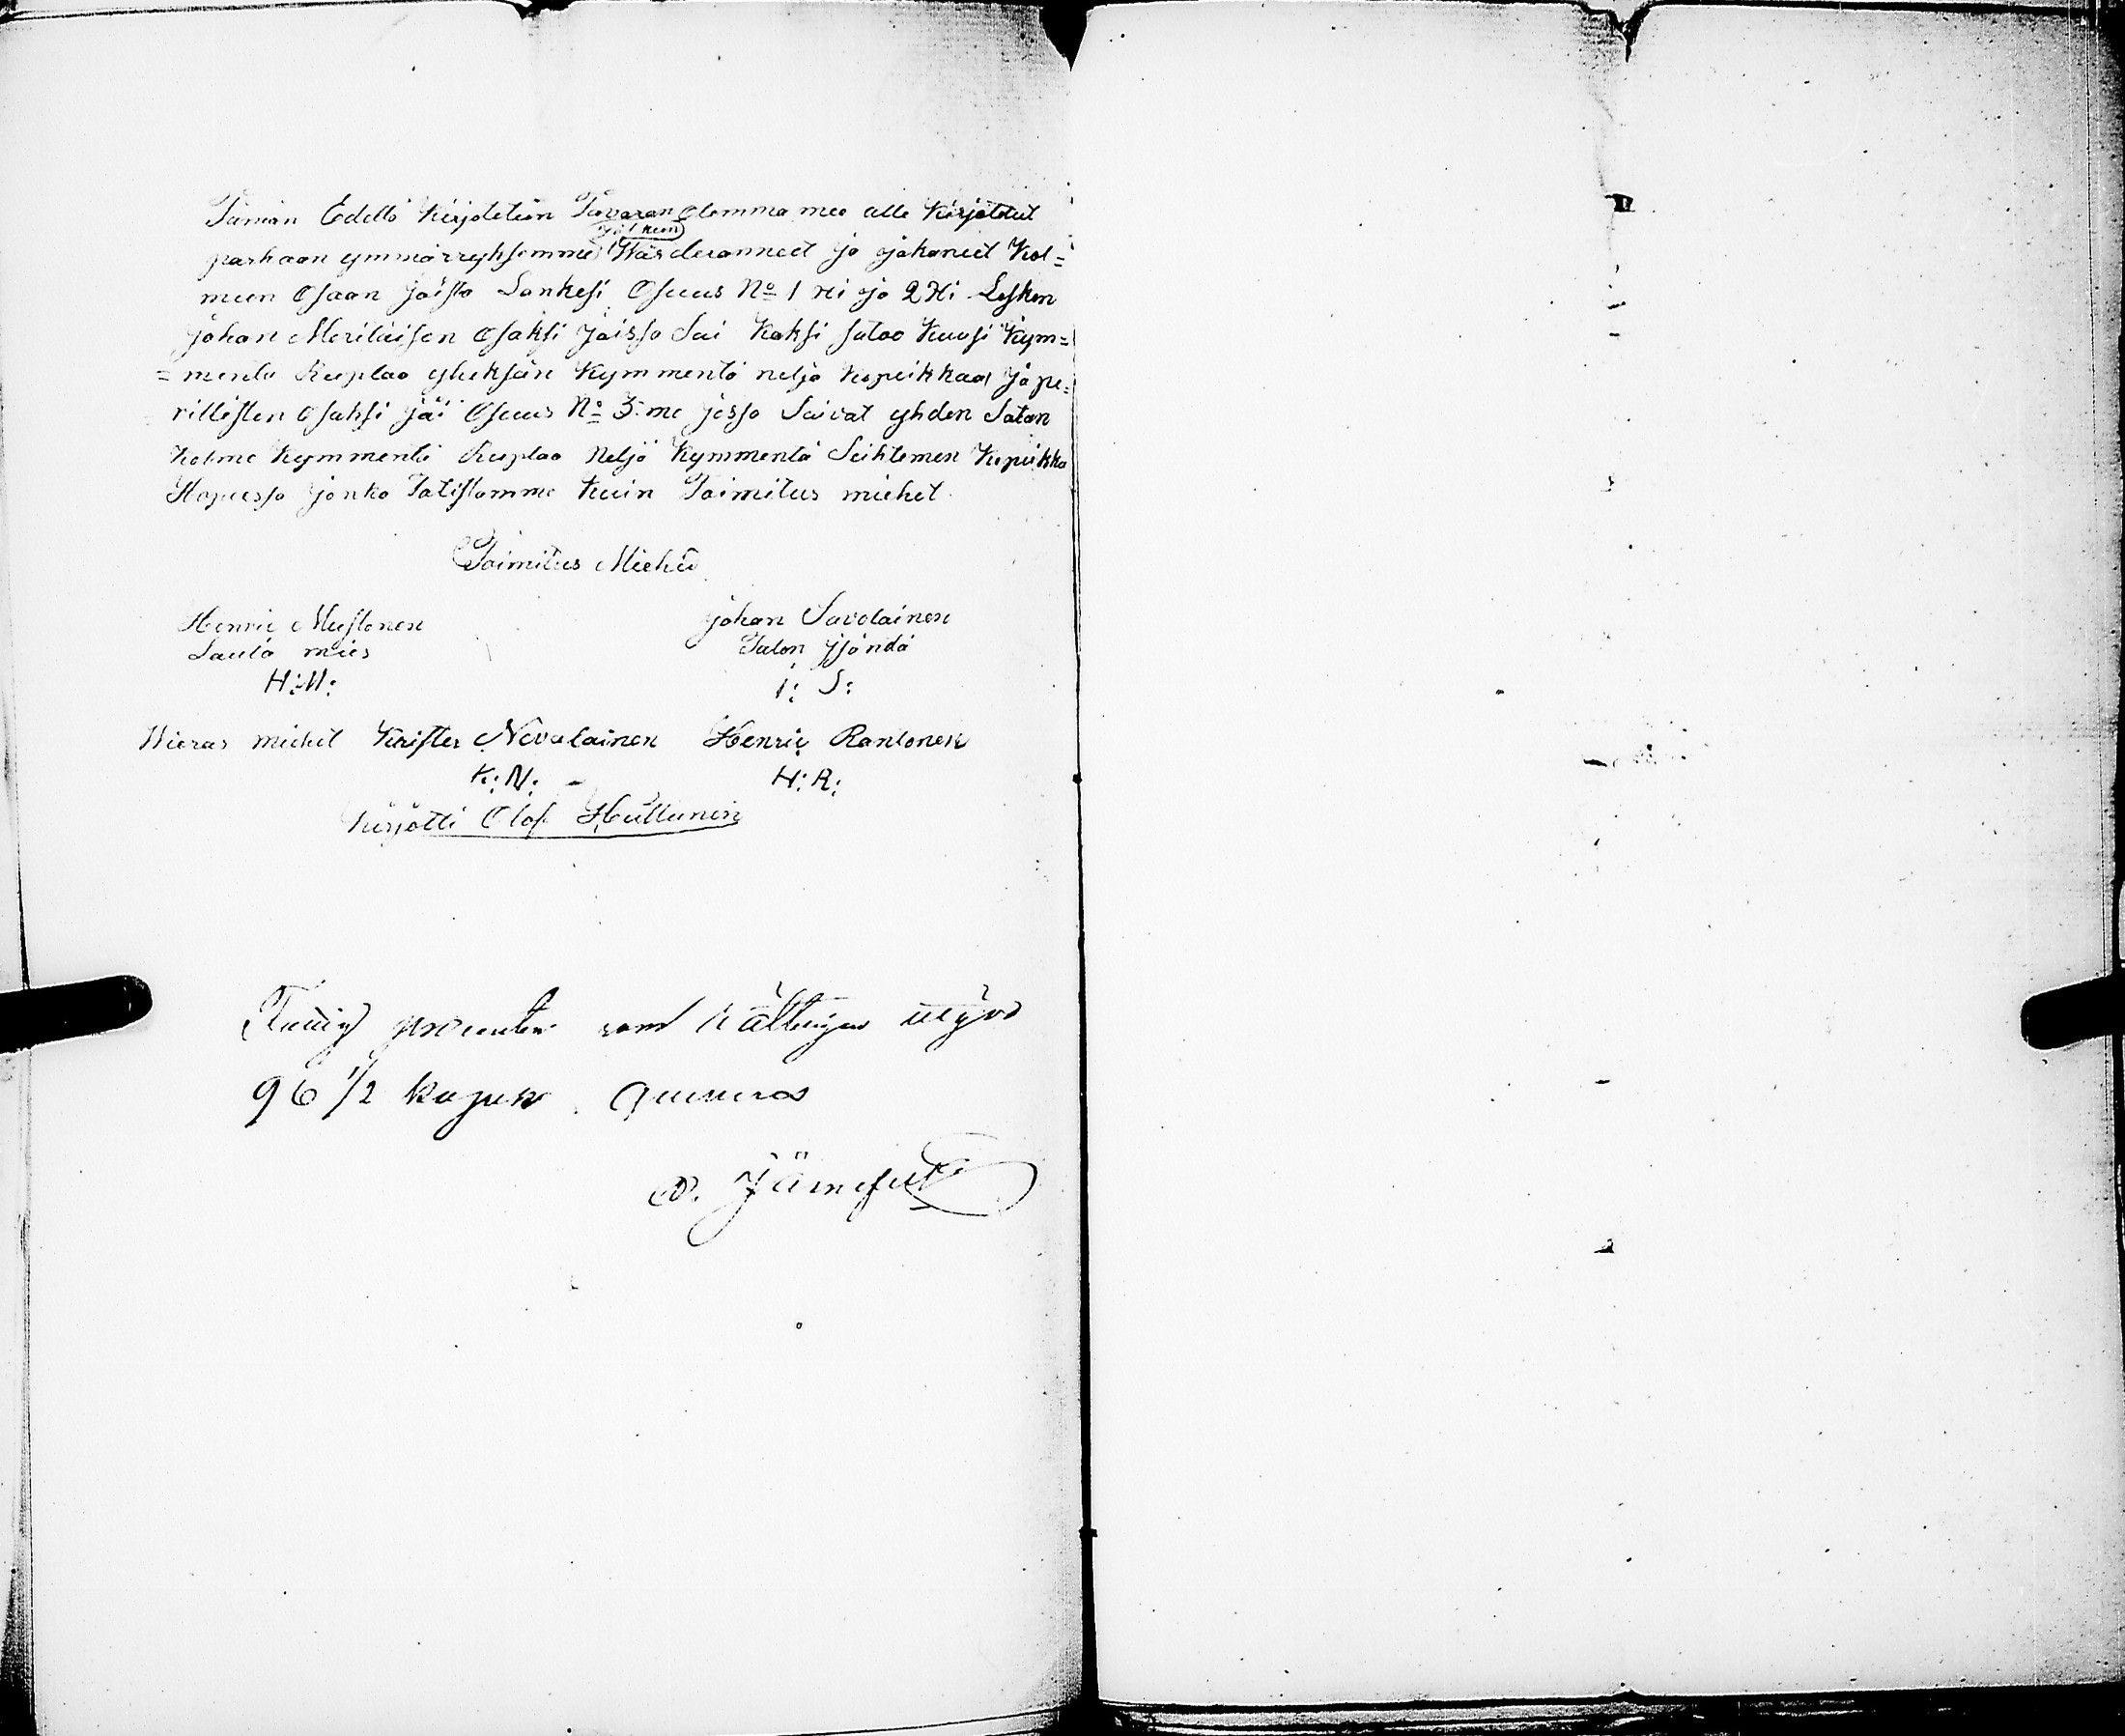 Tämän Edellä Kirjotetun Tavaran olemma me alle Kirjotetut
jälkeen
parhaan ymmärryksemme Wärderanneet ja jakaneet Kol=
meen Osaan joista Lankesi Osuus No 1 xi ja 2xi Lesken
Johan Meriläisen Osaksi joissa Sai Kaksi sataa Kuusi Kym=
=mentä Ruplaa yheksän Kymmentä neljä Kopeikkaa ja pe=
rillisten Osaksi jäi Osuus No 3:me jossa Saivat yhden Satan
Kolme Kymmentä Ruplaa Neljä Kymmentä Seihtemen Kopeikka
Hopiassa jonka Totistamme Kuin Toimitus miehet
Toimitus Miehet
Henric Mustonen Johan Savolainen
Lauta mies Talon Jsändä
H:M: I: S:
Wieras miehet Krister Nevalainen Henric Rantonen
K:N: H:R:
Kirjotti Olof Huttunen
procenten som utgör
96 1/2 kopek
Järnefelt